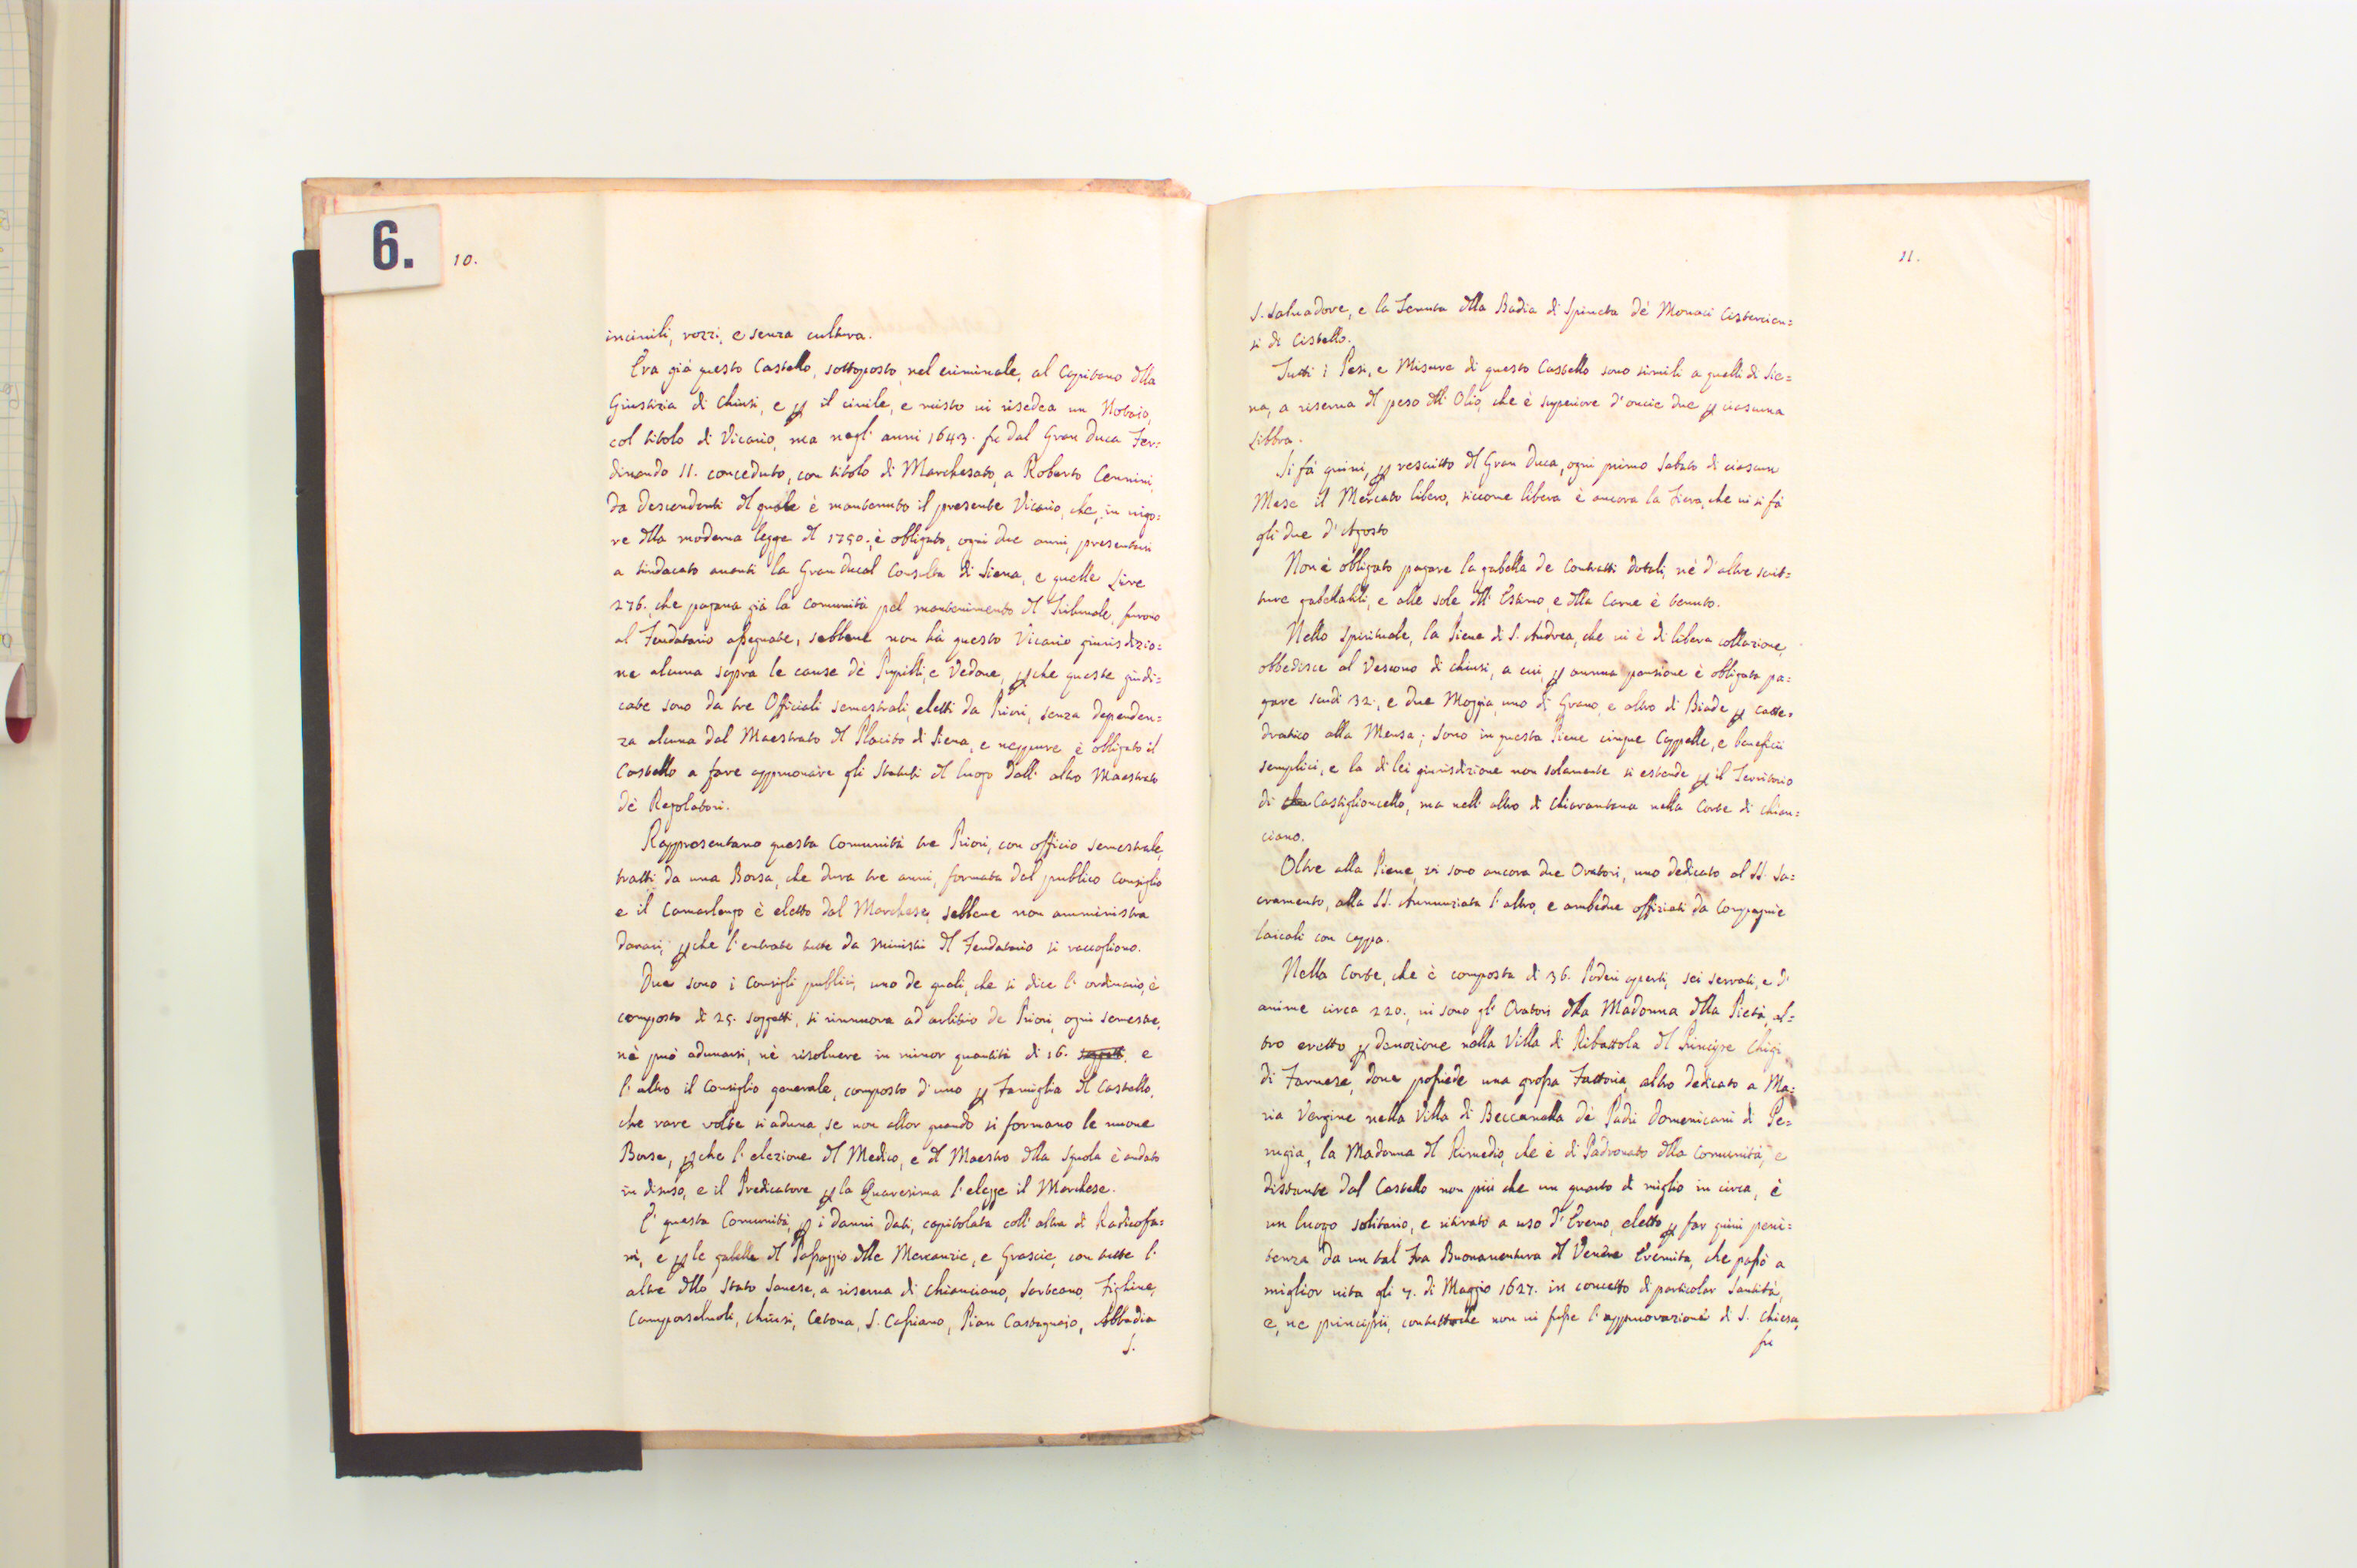 6.
10.
incivili, rozzi, e senza cultura.
Era già questo Castello, sottoposto, nel criminale, al Capitano dlla
Giustizia di Chiusi, e p il civile, e misto vi risedea un Notaio,
col titolo di Vicario, ma negl' anni 1643. fu dal Gran Duca Fer=
dinando II. conceduto, con titolo di Marchesato, a Roberto Cennini,
da descendenti dl quale è mantenuto il presente Vicario, che, in vigo=
re dlla moderna legge dl 1750., è obligato, ogni due anni, presentarsi
a sindacato avanti la Gran Ducal Consulta di Siena, e quelle Lire
276. che pagava già la Comunità pel mantenimento dl Tribunale, furono
al Feudatario assegnate, sebbene non hà questo Vicario giurisdizio=
ne alcuna sopra le cause dè Pupilli, e Vedove, pche queste giudi=
cate sono da tre Officiali semestrali, eletti da Priori, senza dependen=
za alcuna dal Maestrato dl Placito di Siena, e neppure è obligato il
Castello a fare appruovare gli Statuti dl luogo dall' altro Maestrato
dè Regolatori.
Rappresentano questa Comunità tre Priori, con officio semestrale,
tratti da una Borsa, che dura tre anni, formata dal publico Consiglio
e il Camarlengo è eletto dal Marchese, sebbene non amministra
danari, pche l'entrate tutte da Ministri dl Feudatario si raccogliono.
Due sono i Consigli publici, uno de quali, che si dice l'ordinario, è
composto di 25. soggetti, si rinnuova ad arbitrio de Priori, ogni semestre,
nè può adunarsi, nè risolvere in minor quantità di 16. soggetti, e
l'altro il Consiglio generale, composto d'uno p Famiglia dl Castello,
che rare volte si aduna, se non allor quando si formano le nuove
Borse, pche l'elezione dl Medico, e dl Maestro dlla Squola è andato
in disuso, e il Predicatore p la Quaresima l'elegge il Marchese.
E' questa Comunità, p i danni dati, capitolata coll' altra di Radicofa=
ni, e p le gabelle dl Passaggio dlle Mercanzie, e Grascie, con tutte l'
altre dllo Stato Sanese, a riserva di Chianciano, Sarteano, Fighine,
Camporselvoli, Chiusi, Cetona, S. Casciano, Pian Castagnaio, Abbadia
S.
11.
S. Salvadore, e la Tenuta dlla Badia di Spineta dè Monaci Cistercien=
si di Cistello.
Tutti i Pesi, e Misure di questo Castello sono simili a quelli di Sie=
na, a riserva dl peso dll' Olio, che è superiore d'oncie due p ciascuna
Libbra.
Si fà quivi, p rescritto dl Gran Duca, ogni primo Sabato di ciascun
Mese il Mercato libero, siccome libera è ancora la Fiera, che vi si fà
gli due d'Agosto
Non è obligato pagare la gabella de Contratti dotali, nè d'altre scrit=
ture gabellabili, e alle sole dll' Estimo, e dlla Carne è tenuto.
Nello spirituale, la Pieve di S. Andrea, che vi è di libera collazione,
obbedisce al Vescovo di Chiusi, a cui, p annua pensione è obligata pa=
gare scudi 32., e due Moggia, uno di Grano, e altro di Biade p Catte=
dratico alla Mensa; Sono in questa Pieve cinque Cappelle, e beneficii
semplici, e la di lei giurisdizione non solamente si estende p il Territorio
di Castiglioncello, ma nell' altro di Chiarantana nella Corte di Chian=
ciano.
Oltre alla Pieve, vi sono ancora due Oratori, uno dedicato al SS. Sa=
cramento, alla SS. Annunziata l'altro, e ambedue offiziati da Compagnie
laicali con cappa.
Nella Corte, che è composta di 36. Poderi aperti, sei serrati, e d'
anime circa 220., vi sono gl' Oratori dlla Madonna dlla Pietà, al=
tro eretto p devozione nella Villa di Ribattola dl Principe Chigi
di Farnese, dove possiede una grossa Fattoria, altro dedicato a Ma=
ria Vergine nella Villa di Beccanella dè Padri Domenicani di Pe=
rugia, la Madonna dl Rimedio, che è di Padronato dlla Comunità, e
distante dal Castello non più che un quarto di miglio in circa, è
un luogo solitario, e ritirato a uso d'Eremo, eletto p far quivi peni=
tenza da un tal Fra Buonaventura dl Eremita, che passò a
miglior vita gli 7. di Maggio 1627. in concetto di particolar Santità,
e, ne principii, contuttoche non vi fusse l'appruovazione di S. Chiesa,
fu